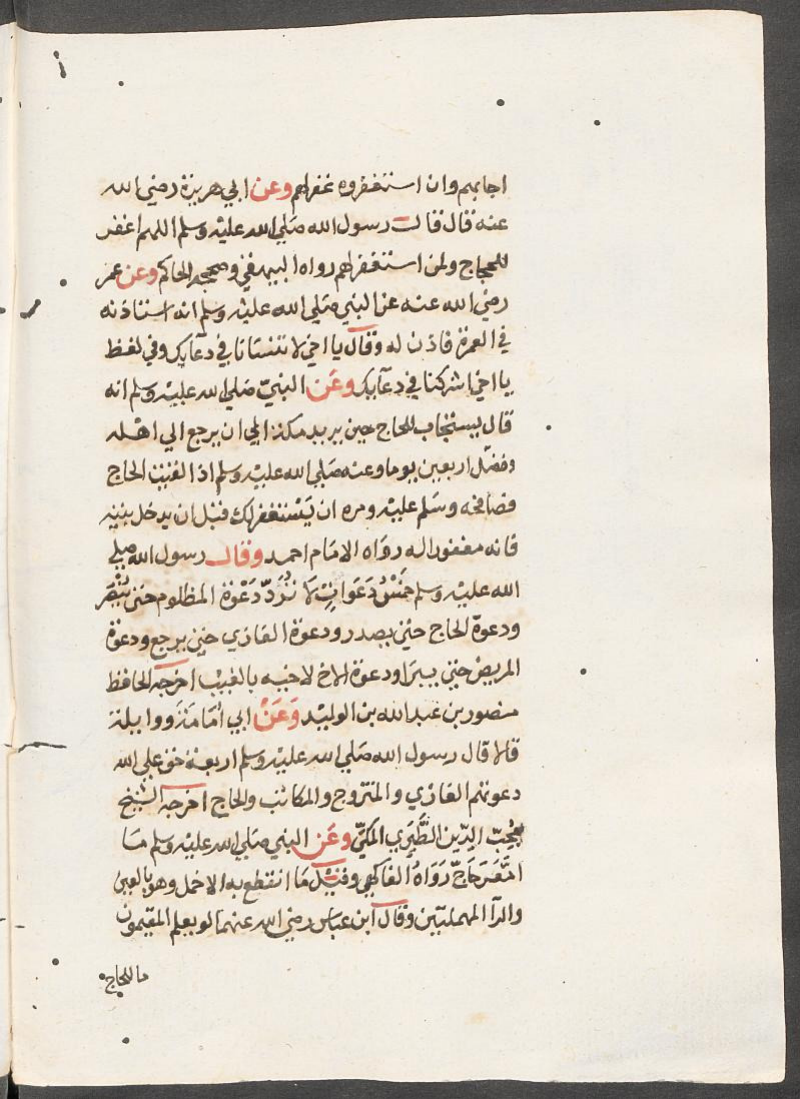 اجابهم وان استغفروه غفرلهم وعن ابي هريرة رضي الله
عنه قال قالت رسول الله صلي الله عليه وسلم اللهم اغفر
للحجاج ولمن استغفرلهم رواه البيهقي وصححه الحاكم وعن عمر
رضي الله عنه عن النبي صلي الله عليه وسلم انه استاذنه
في العمرة فاذن له وقال يا اخي لا تنسانا في دعآيك وفي لفظ
يا اخي اشركنا في دعآيك وعن النبي صلي الله عليه وسلم انه
قال يستجاب للحاج حين يريد مكة الي ان يرجع الي اهله
وفضل اربعين يوما وعنه صلي الله عليه وسلم اذا لقيت الحاج
فصافحه وسلم عليه ومره ان يستغفرلك قبل ان يدخل بيته
فانه مغفور له رواه الامام احمد وقال رسول الله صلي
الله عليه وسلم خمس دعوات لا ترد دعوة المظلوم حتي ينتصر
ودعوة الحاج حتي يصدر ودعوة الغازي حتي يرجع ودعوة
المريض حتي يبرا ودعوة الاخ لاخيه بالغيب اخرجه الحافظ
منصور بن عبد الله بن الوليد وعن ابي امامة وواثلة
قالا قال رسول الله صلي الله عليه وسلم اربعة حق علي الله
دعوتهم الغازي والمتزوج والمكاتب والحاج اخرجه الشيخ
محب الدين الطبري المكي وعن النبي صلي الله عليه وسلم ما
امعر حاج رواه الفاكهي وقيل ما انقطع به الاخمل وهو بالعين
والرآ المهملتين وقال ابن عباس رضي الله عنهما لو يعلم المقيمون
ما للحاج